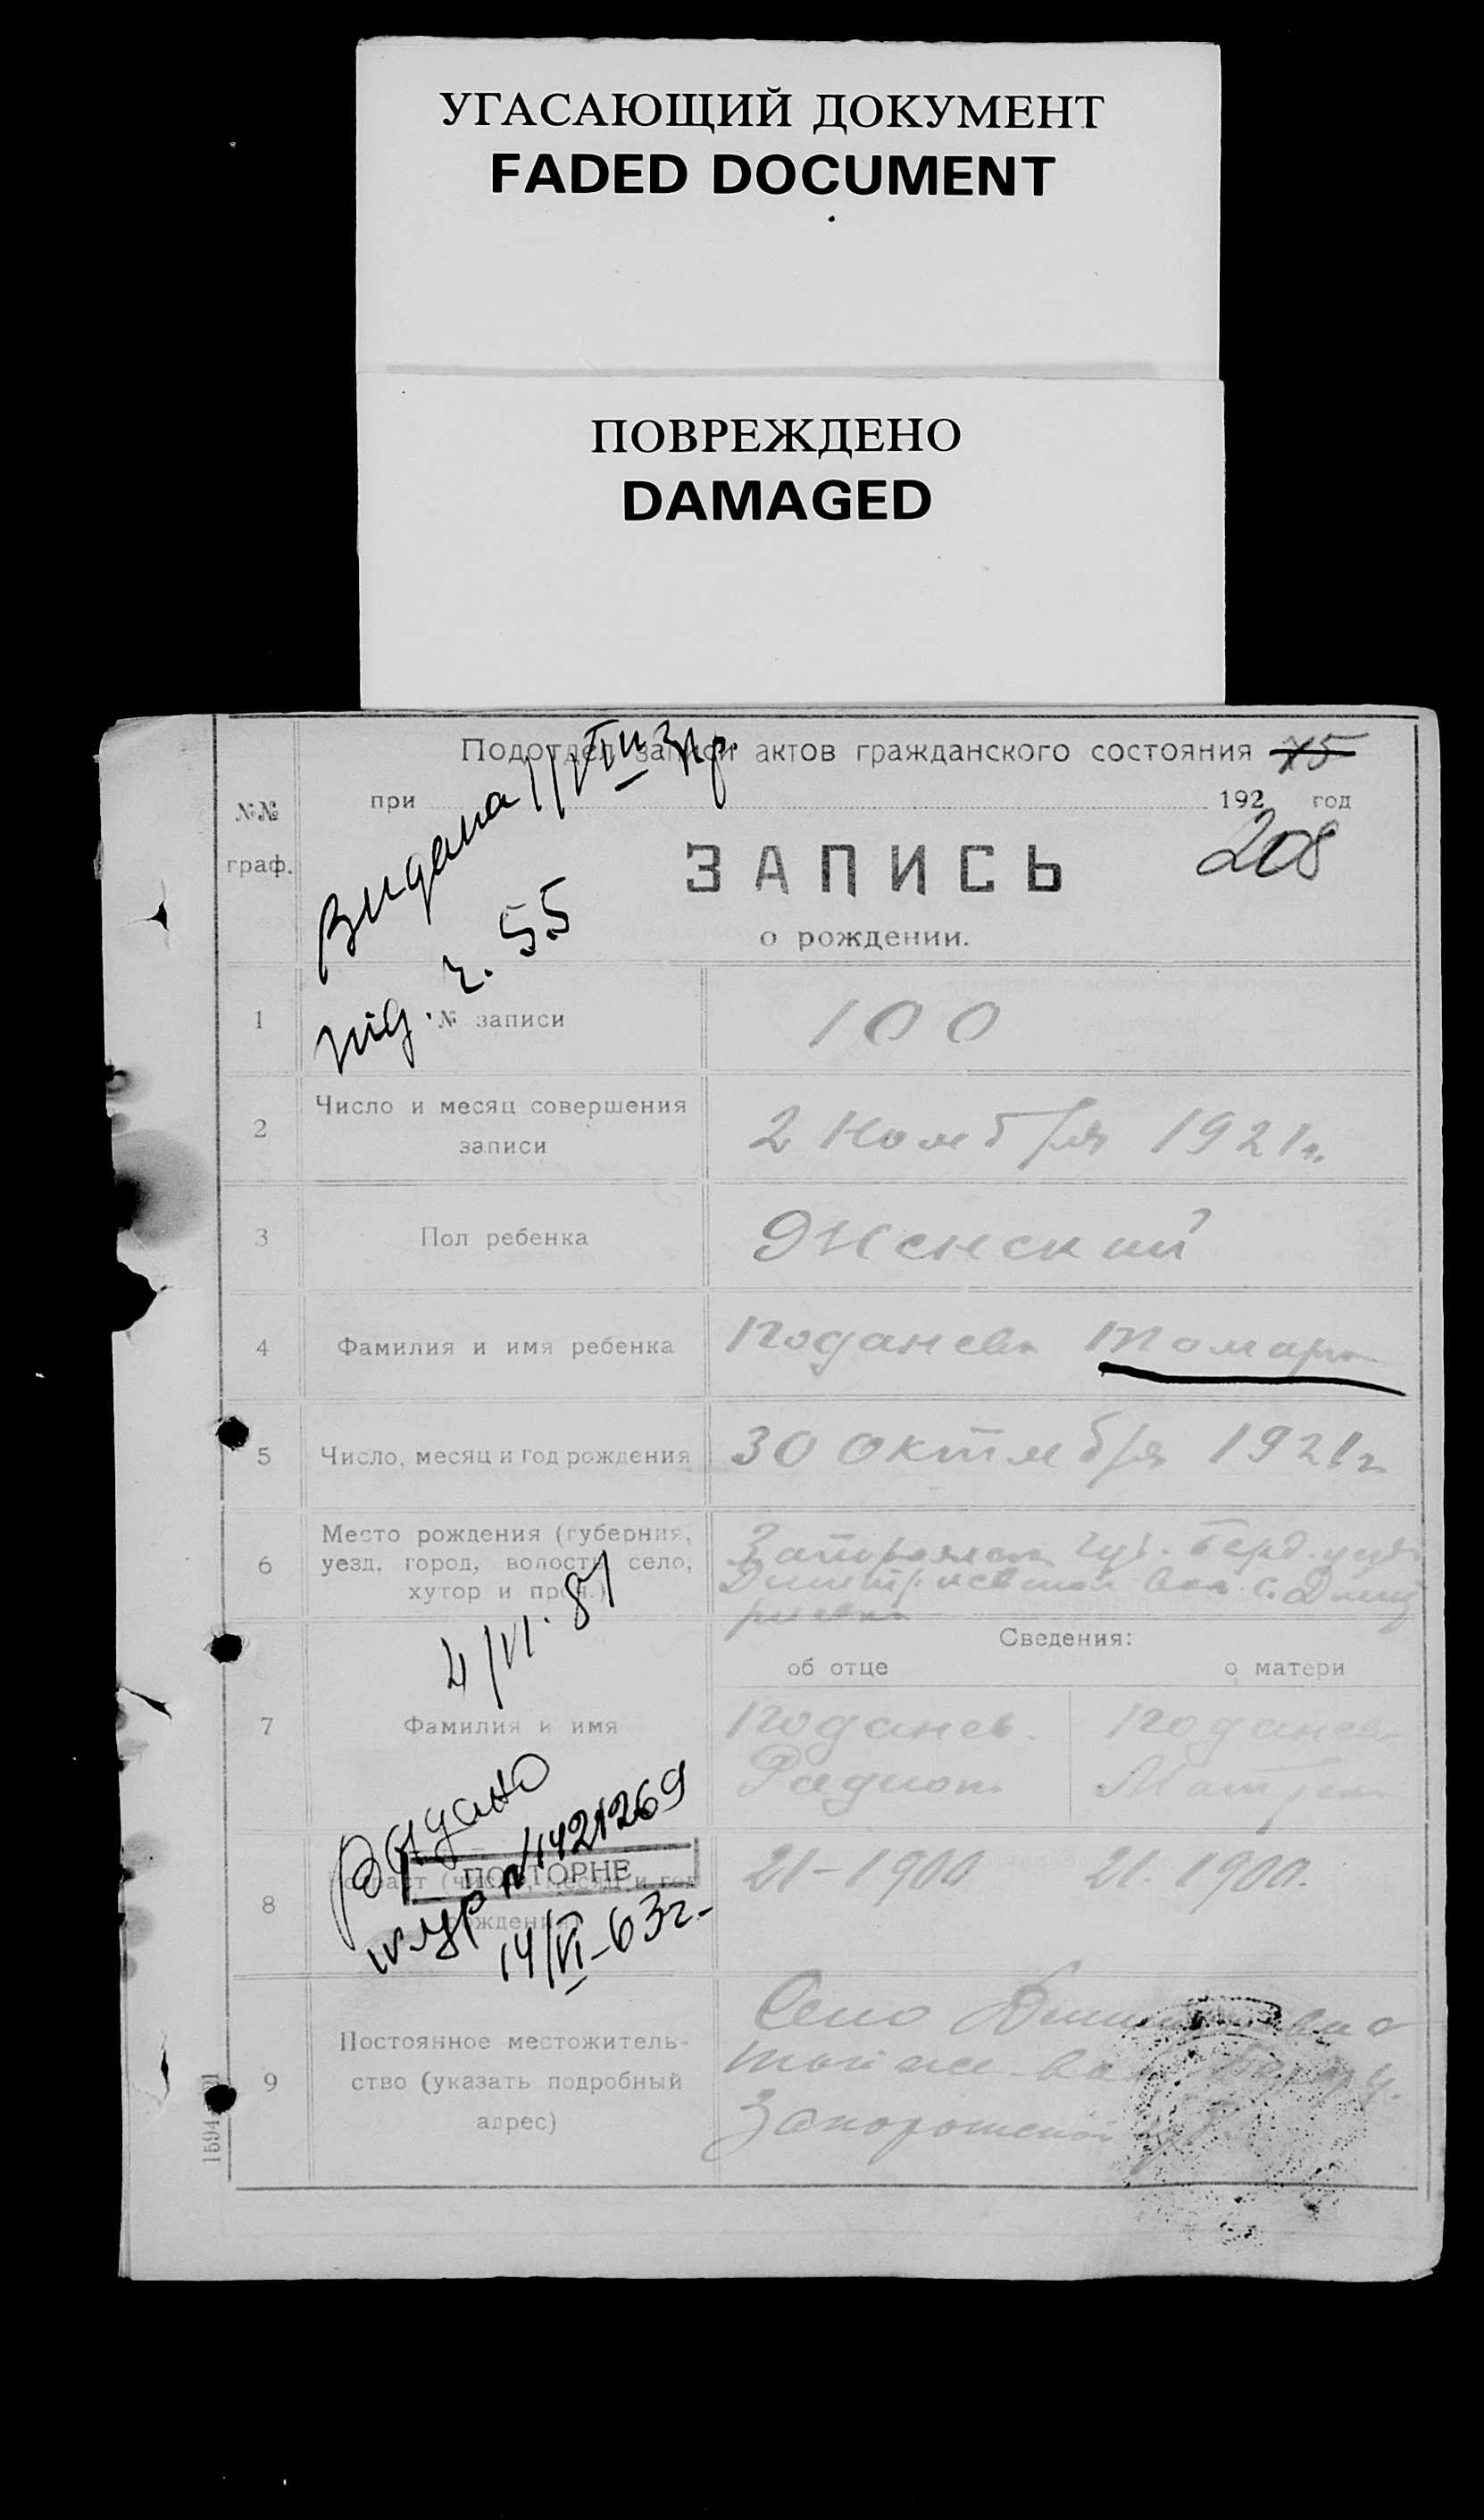 УГАСАЮЩИЙ ДОКУМЕНТ
FADED DOCUMENT
ПОВРЕЖДЕНО
DAMAGED
Подотдел записи актов гражданского состояния 75
при 192 год
№№
граф.
208
ЗАПИСЬ
о рождении.
Видана
під. ч. 55
1 № записи 100
2 Число и месяц совершения
записи
2 Ноября 1921 г.
3 Пол ребенка Женский
4 Фамилия и имя ребенка Коданева Томара
5 Число, месяц и год рождения 30 Октября 1921 г
6 Место рождения (губерния,
уезд, город, волость, село,
хутор и проч.)
губ. Берд. уезд
вол. с.
4/VI. 87
Сведения:
об отце о матери
7 Фамилия и имя
Коданев Коданева
Радион
Видано
ПОВТОРНЕ
№ 4421269
14/VI-63г.
8 Возраст (число, месяц и год
рождения)
21-1900 21. 1900.
9 Постоянное местожитель-
ство (указать подробный
адрес)
Село
той же
Запорожской